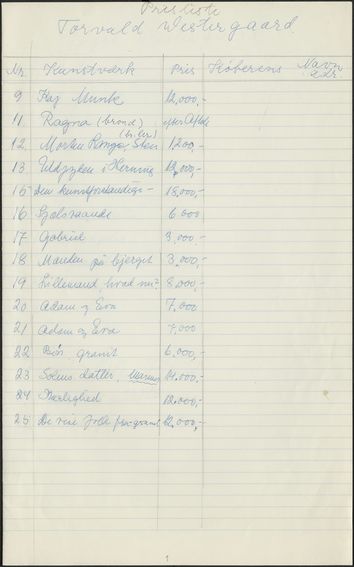 Prisliste
Torvald Westergaard
Nr. Kunstværk Pris Køberens Navn
adr.
9 Kaj Munk 12,000,-
11 Ragna (bronce) efter Aftale
12 Morten Shen (b. ler) 1200,-
13 i Herning 12,000,-
15 Den kunstforstandige - 18,000,-
16 6000
17 Gabriel 3,000,-
18 Manden på bjerget 3,000,-
19 Lillemand hvad nu? 8,000,-
20 Adam og Eva 7,000
21 Adam og Eva 7,000
22 granit 6,000,-
23 Solens datter, Marmor 14,000,-
24 Kærlighed 12,000,-
25 De vise 12,000,-
1